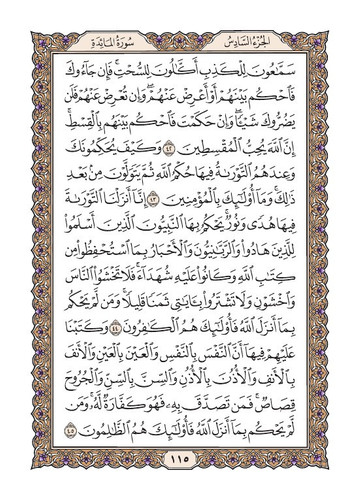 الجُزءُ السَّادِسُ سُورَةُ المَائِدَةِ
سَمَّٰعُونَ لِلۡكَذِبِ أَكَّٰلُونَ لِلسُّحۡتِۚ فَإِن جَآءُوكَ
فَٱحۡكُم بَيۡنَهُمۡ أَوۡ أَعۡرِضۡ عَنۡهُمۡۖ وَإِن تُعۡرِضۡ عَنۡهُمۡ فَلَن
يَضُرُّوكَ شَيۡـٔٗاۖ وَإِنۡ حَكَمۡتَ فَٱحۡكُم بَيۡنَهُم بِٱلۡقِسۡطِۚ
إِنَّ ٱللَّهَ يُحِبُّ ٱلۡمُقۡسِطِينَ ٤٢ وَكَيۡفَ يُحَكِّمُونَكَ
وَعِندَهُمُ ٱلتَّوۡرَىٰةُ فِيهَا حُكۡمُ ٱللَّهِ ثُمَّ يَتَوَلَّوۡنَ مِنۢ بَعۡدِ
ذَٰلِكَۚ وَمَآ أُوْلَٰٓئِكَ بِٱلۡمُؤۡمِنِينَ ٤٣ إِنَّآ أَنزَلۡنَا ٱلتَّوۡرَىٰةَ
فِيهَا هُدٗى وَنُورٞۚ يَحۡكُمُ بِهَا ٱلنَّبِيُّونَ ٱلَّذِينَ أَسۡلَمُواْ
لِلَّذِينَ هَادُواْ وَٱلرَّبَّٰنِيُّونَ وَٱلۡأَحۡبَارُ بِمَا ٱسۡتُحۡفِظُواْ مِن
كِتَٰبِ ٱللَّهِ وَكَانُواْ عَلَيۡهِ شُهَدَآءَۚ فَلَا تَخۡشَوُاْ ٱلنَّاسَ
وَٱخۡشَوۡنِ وَلَا تَشۡتَرُواْ بِـَٔايَٰتِي ثَمَنٗا قَلِيلٗاۚ وَمَن لَّمۡ يَحۡكُم
بِمَآ أَنزَلَ ٱللَّهُ فَأُوْلَٰٓئِكَ هُمُ ٱلۡكَٰفِرُونَ ٤٤ وَكَتَبۡنَا
عَلَيۡهِمۡ فِيهَآ أَنَّ ٱلنَّفۡسَ بِٱلنَّفۡسِ وَٱلۡعَيۡنَ بِٱلۡعَيۡنِ وَٱلۡأَنفَ
بِٱلۡأَنفِ وَٱلۡأُذُنَ بِٱلۡأُذُنِ وَٱلسِّنَّ بِٱلسِّنِّ وَٱلۡجُرُوحَ
قِصَاصٞۚ فَمَن تَصَدَّقَ بِهِۦ فَهُوَ كَفَّارَةٞ لَّهُۥۚ وَمَن
لَّمۡ يَحۡكُم بِمَآ أَنزَلَ ٱللَّهُ فَأُوْلَٰٓئِكَ هُمُ ٱلظَّٰلِمُونَ ٤٥
١١٥